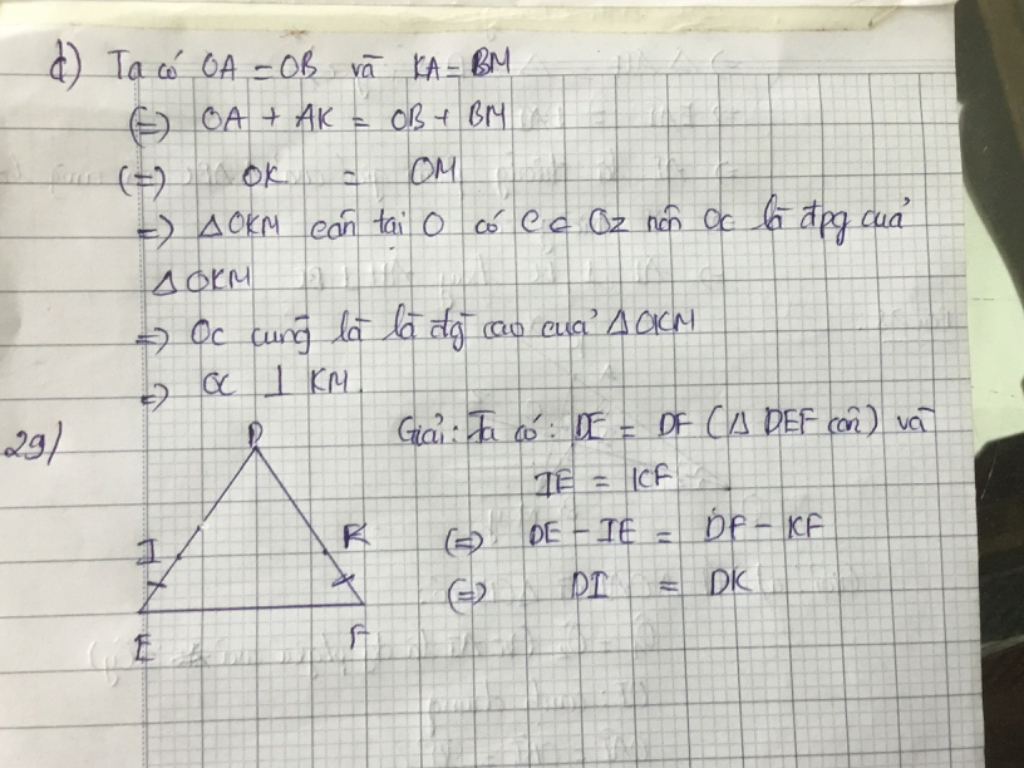 d) Ta có OA = OB và KA = BM
(=) OA + AK = OB + BM
(=) OK = OM
=) ΔOKM cân tại O có C ∈ Oz nên OC là đpg của
ΔOKM
=) OC cũng là là đg cao của ΔOKM
=) OC ⊥ KM.
29/ Giải: Ta có: DE = DF (Δ DEF cân) và
IE = KF
(=) DE - IE = DF - KF
(=) DI = DK
D
I K
E F